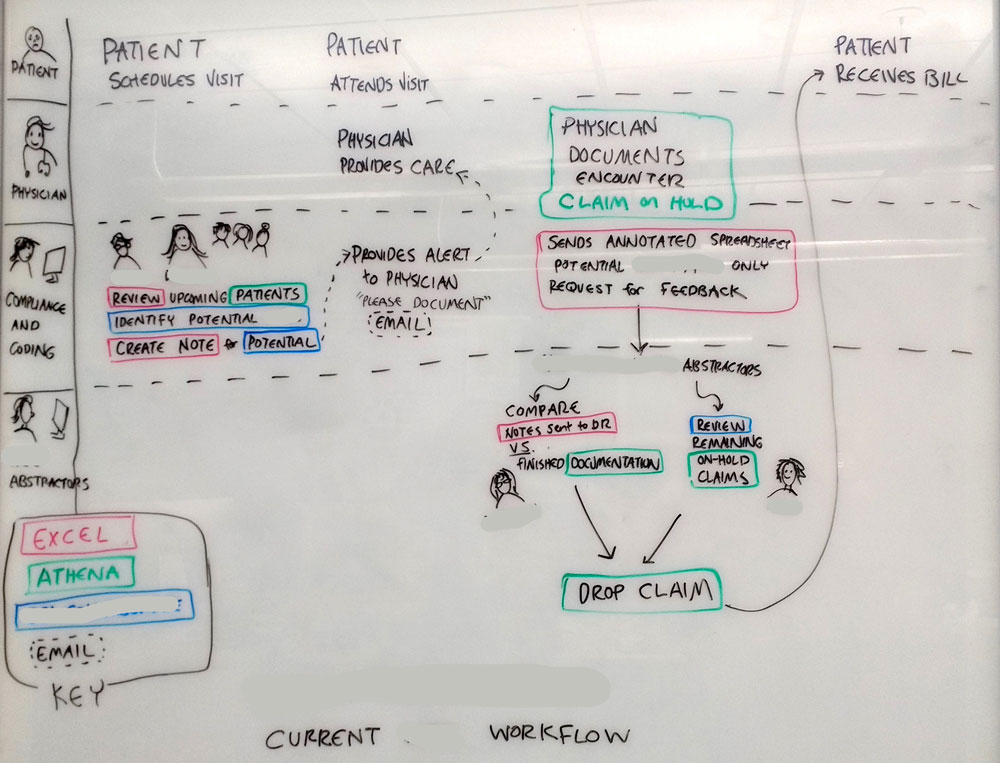 PATIENT
PATIENT
SCHEDULES VISIT
PATIENT
ATTENDS VISIT
PATIENT
RECEIVES BILL
PHYSICIAN
PHYSICIAN
PROVIDES CARE
PHYSICIAN
DOCUMENTS
ENCOUNTER
CLAIM on HOLD
COMPLIANCE
AND
CODING
REVIEW UPCOMING PATIENTS
IDENTIFY POTENTIAL
CREATE NOTE for POTENTIAL
PROVIDES ALERT
to PHYSICIAN
"PLEASE DOCUMENT"
EMAIL
SENDS ANNOTATED SPREADSHEET
POTENTIAL ONLY
REQUEST for FEEDBACK
ABSTRACTORS
ABSTRACTORS
COMPARE
NOTES Sent to DR
VS.
FINISHED DOCUMENTATION
REVIEW
REMAINING
ON-HOLD
CLAIMS
DROP CLAIM
EXCEL
ATHENA
EMAIL
KEY
CURRENT WORKFLOW